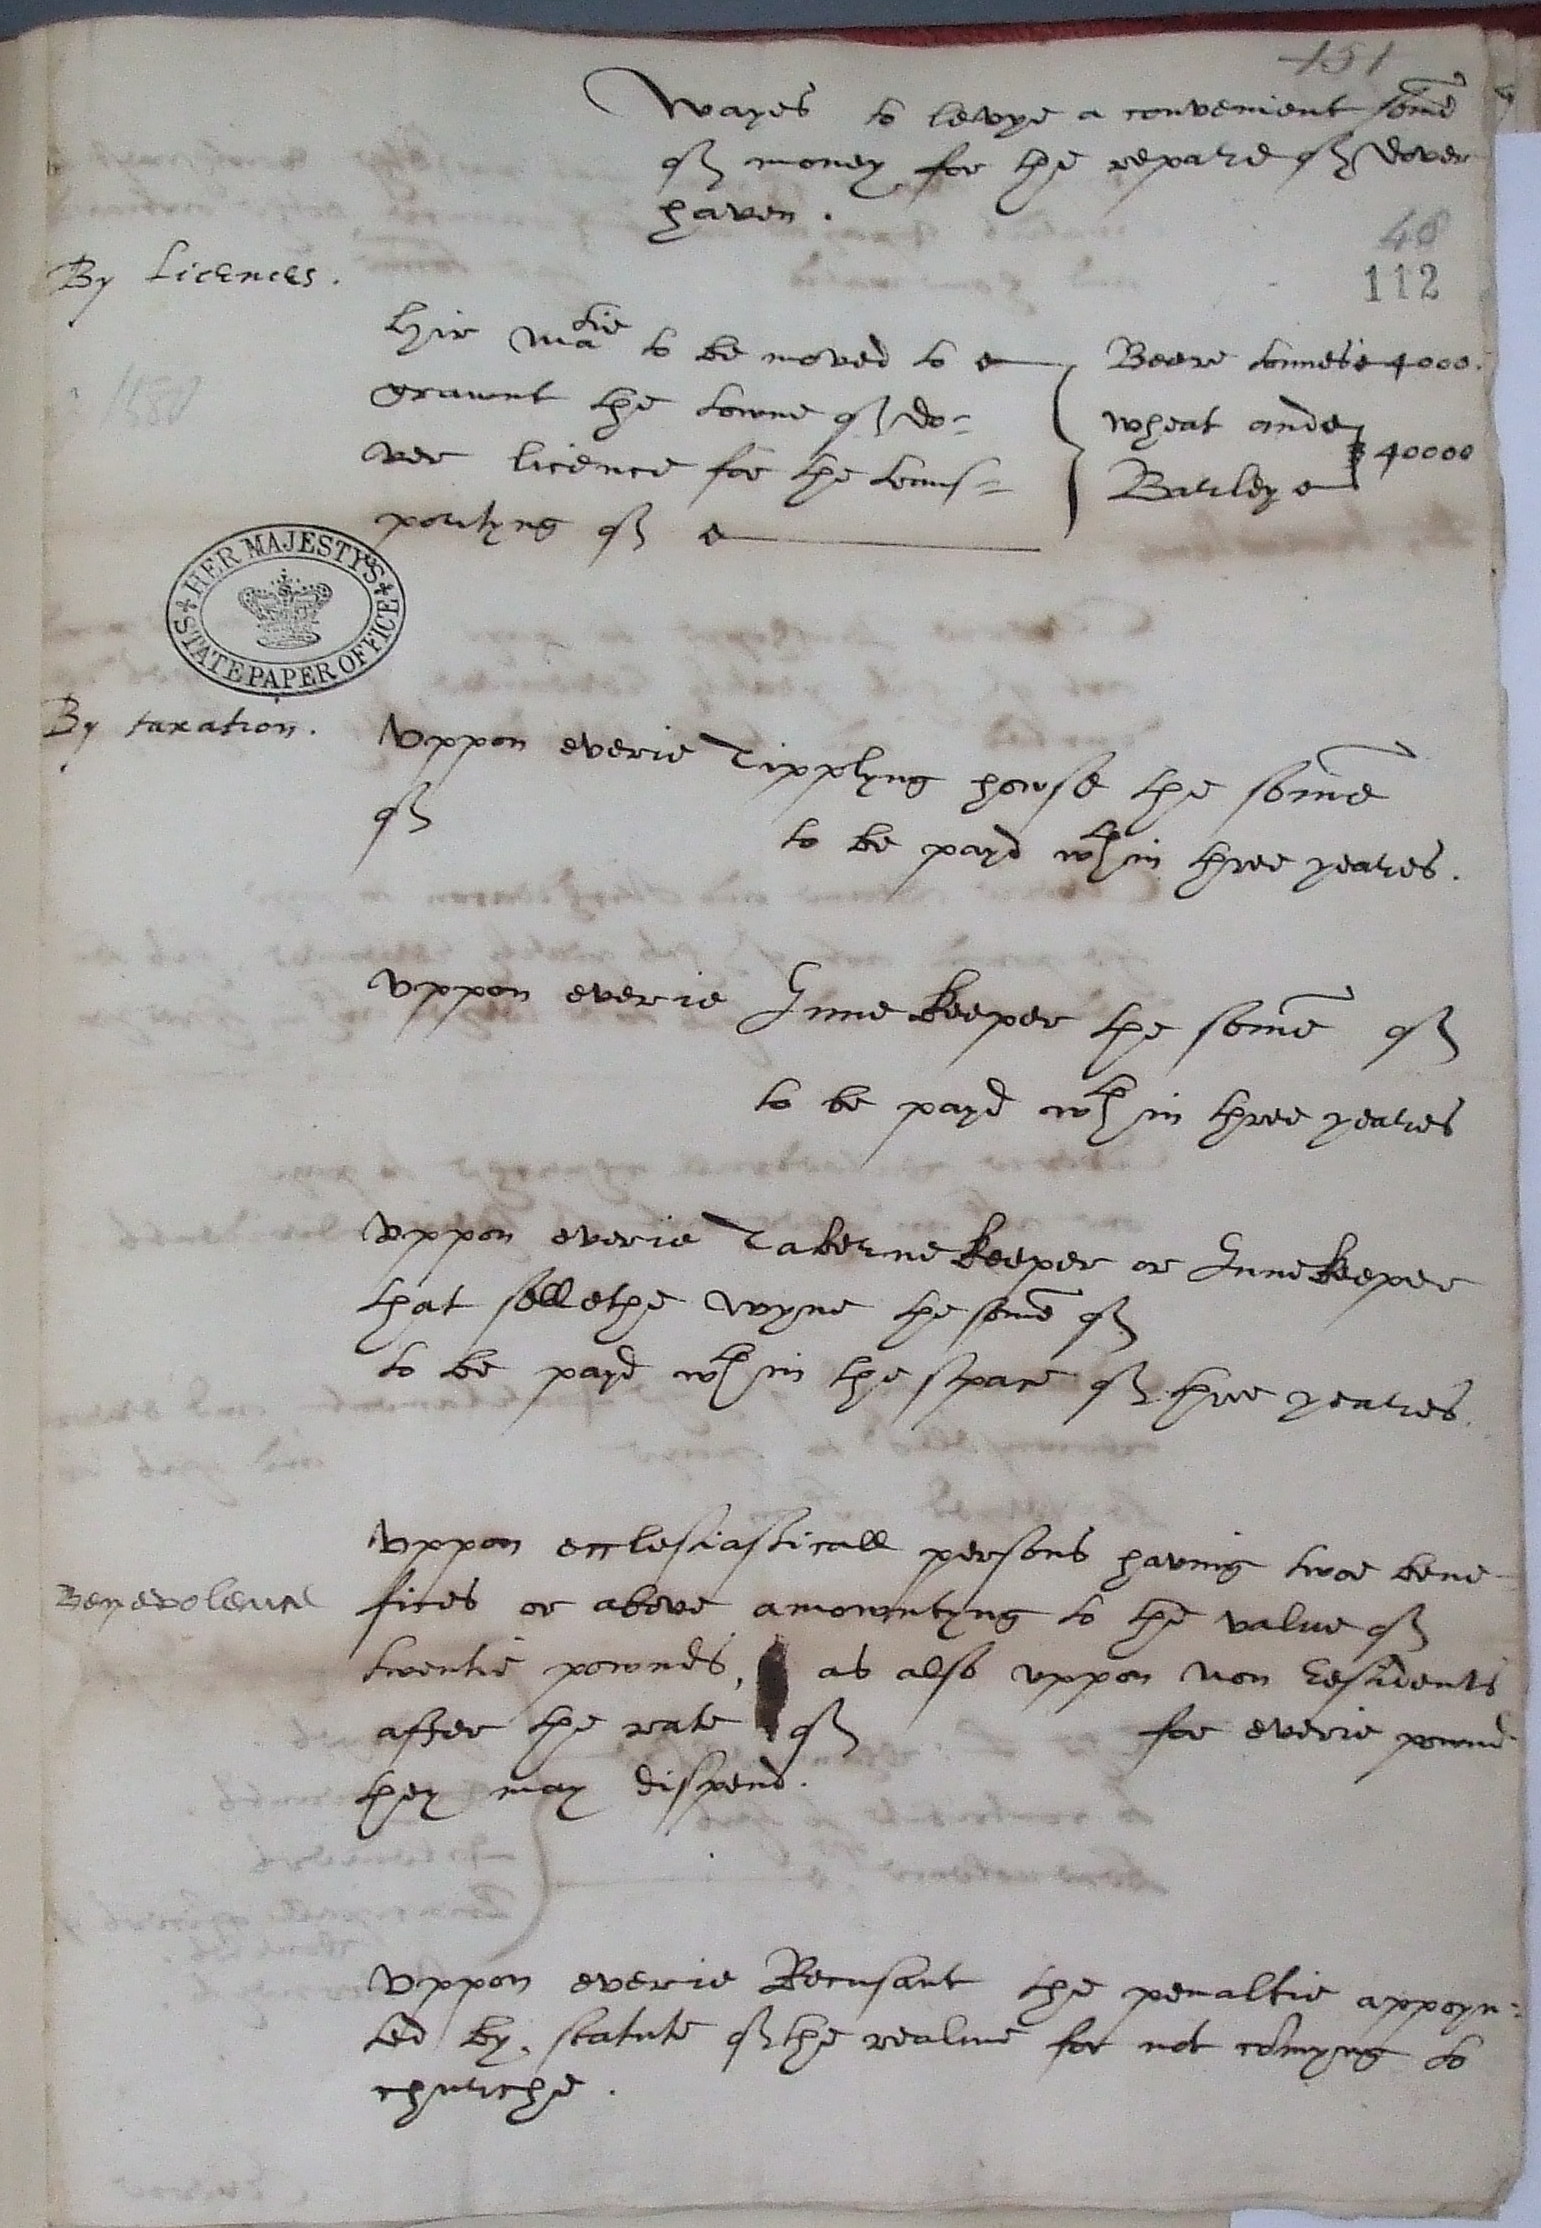 151
Wayes to levye a convenient some
of money for the repaire of Dover
haven.
48
112
By Licences.
Hir Matie to be moved to
graunt the towne of Do-
ver licence for the trans-
portyng of
Beere tonnes 4000.
Wheat and
Barley
40000
1580
HER MAJESTY'S
STATE PAPER OFFICE
By taxation.
Uppon everie Tipplyng howse the some
of
to be payd wthin three yeares.
Uppon everie Inne keeper the some of
to be payd wth in three yeares
Uppon everie Taberne keeper or Inne keeper
that sellethe wyne the some of
to be payd wthin the space of three yeares.
Uppon ecclesiasticall persons having twoe bene-
Benevolence
fices or above amountyng to the value of
twentie pownds, as also uppon non Residents
after the rate of for everie pownd
they may dispend.
Uppon everie Recusant the penaltie appoyn=
ted by statute of the realme for not comyng to
churche.